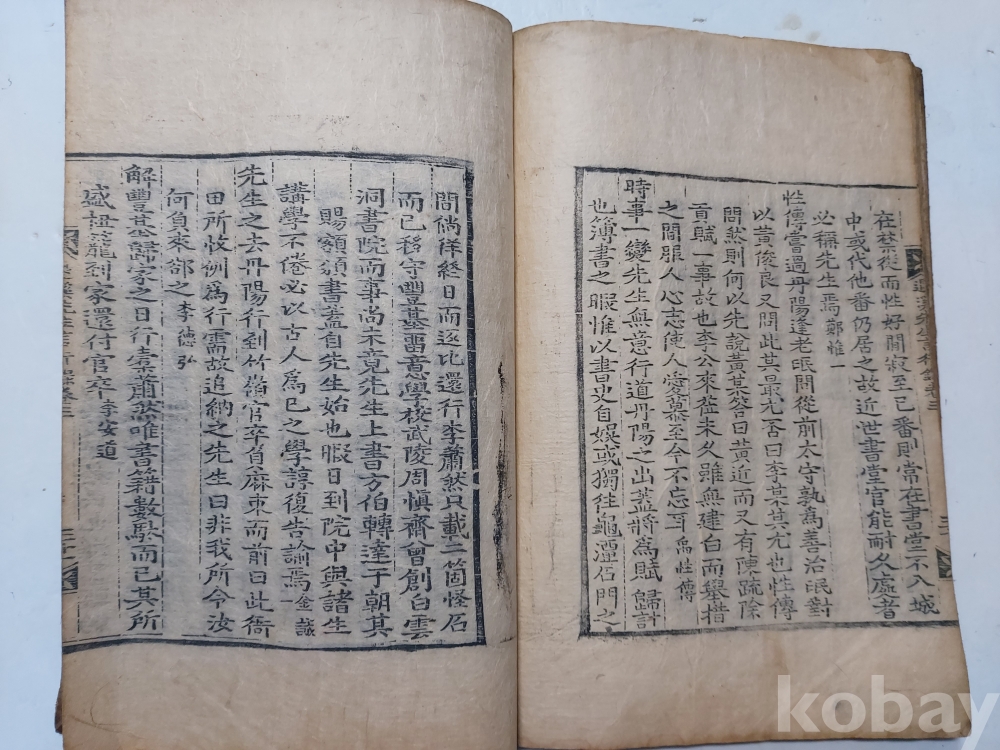 在禁從而性好閒寂至己番則常在書堂不入城
中或代他番仍居之故近世書堂官能耐久處者
必稱先生焉 鄭惟一
性傳嘗過丹陽逢老氓問從前太守孰爲善治氓對
以黃俊良又問此其最尤否曰李某其尤也性傳
問然則何以先說黃某答曰黃近而又有陳疏除
貢賦一事故也李公來莅未久雖無建白而擧措
之間服人心志使人愛慕至今不忘耳 禹性傳
時事一變先生無意行道丹陽之出蓋將爲賦歸計
也簿書之暇惟以書史自娛或獨往龜潭石門之
間倘佯終日而返比還行李蕭然只載二箇怪石
而已移守豐基留意學校武陵周愼齋曾創白雲
洞書院而事尙未竟先生上書方伯轉達于朝其
賜額頒書蓋自先生始也暇日到院中與諸生
講學不倦必以古人爲己之學諄復告諭焉 金誠
先生之去丹陽行到竹嶺官卒負麻束而前曰此衙
田所收例爲行需故追納之先生曰非我所令汝
何負來郤之 李德弘
解豐基歸家之日行橐蕭然唯書籍數駄而已其所
盛橙籠到家還付官卒 李安道
kobay